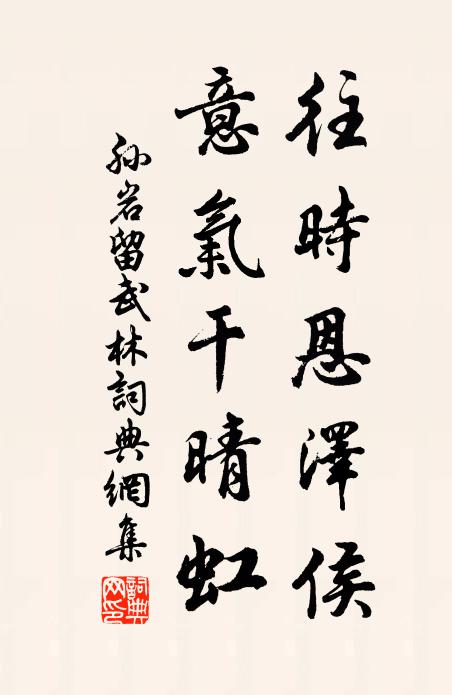 往時恩澤侯
意氣干晴虹
孫岩留武林詞典網集
詞典网印